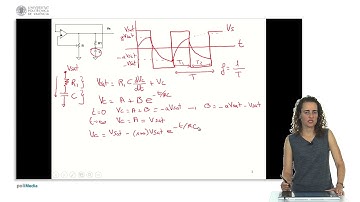 UNIVERSITAT
POLITÈCNICA
DE VALÈNCIA
Vsat
aVsat
-aVsat
-Vsat
Vs
t
T₁
T₂
T
f = 1/T
Vsat
R₁
C
Vsat = R₁ C dVc/dt + Vc
Vc = A + B e^(-t/R₁C)
t=0 Vc = A + B = -aVsat → B = -aVsat - Vsat
t=∞ Vc = A = Vsat
Vc = Vsat - (1+a)Vsat e^(-t/R₁C)
poliMedia